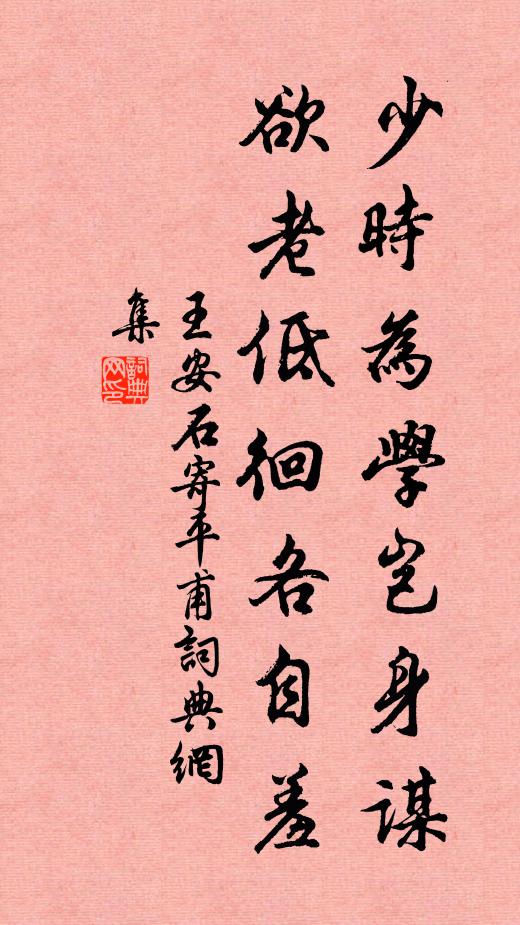 少時為學豈身謀
欲老低徊各自羞
王安石寄平甫詞典網
集
詞典
网印